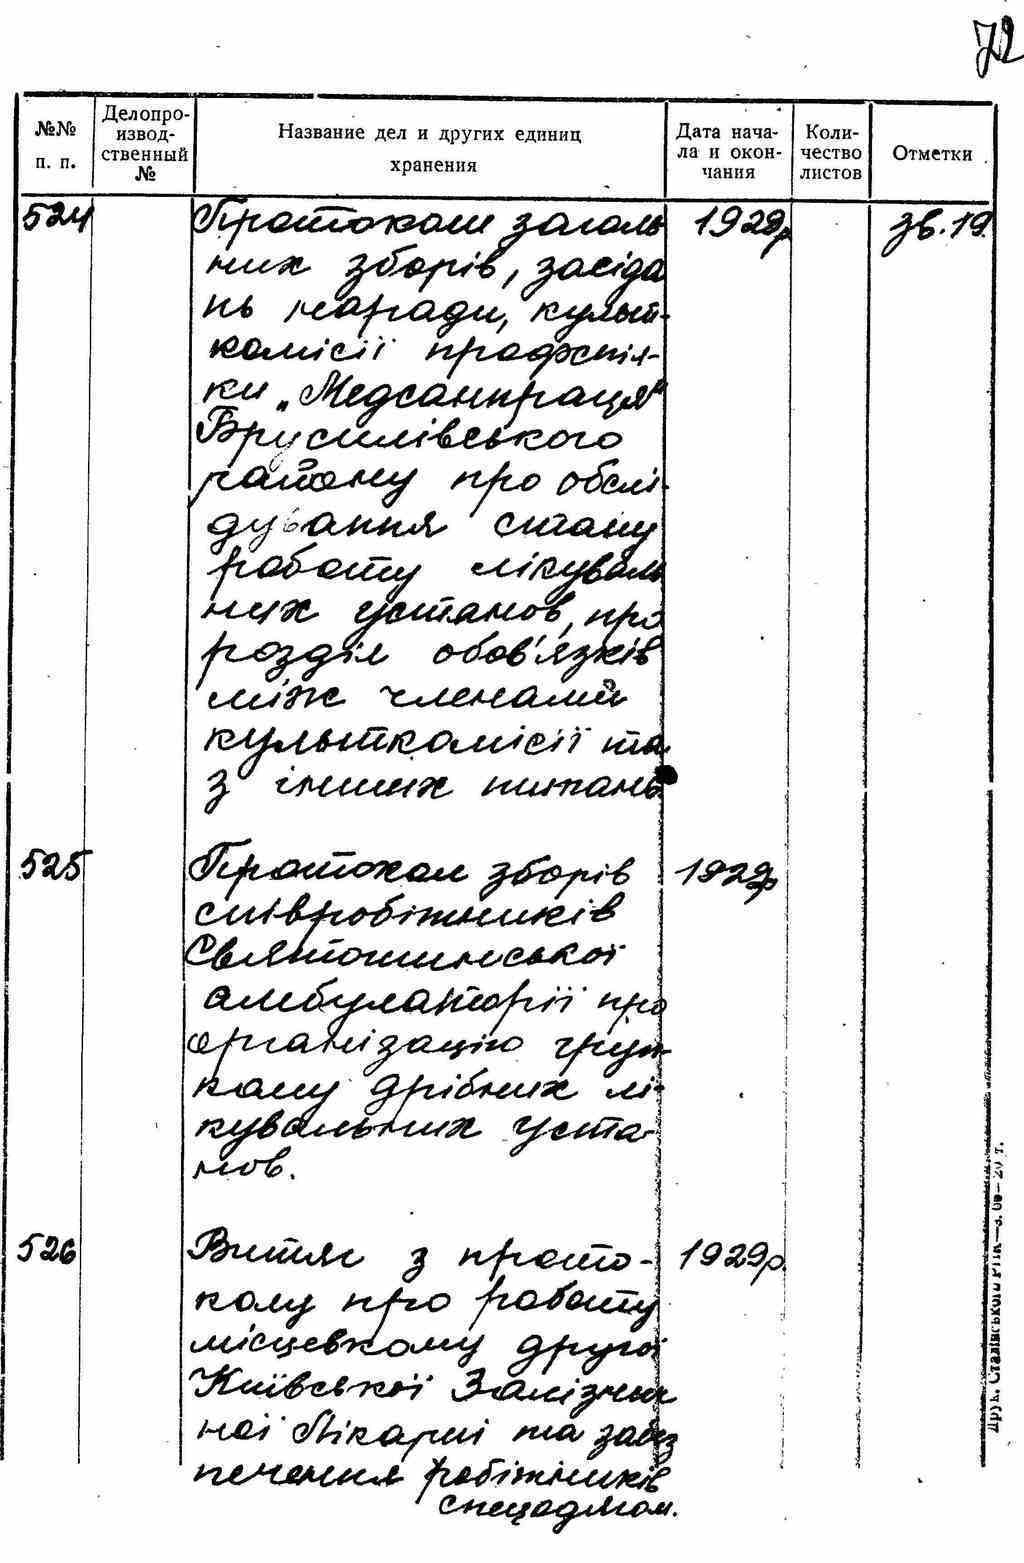 72
№№ п. п.
Делопро-
извод-
ственный
№
Название дел и других единиц
хранения
Дата нача-
ла и окон-
чания
Коли-
чество
листов
Отметки
524 Протоколи загаль 1929р зв. 19.
них зборів, засіда
нь наради, культ-
комісії профспіл-
ки „Медсанпраця"
Брусилівського
району про обслі-
дування стану
работу лікуваль
них установ, про
розділ обов'язків
між членами
культкомісії та
з інших питань
525 Протокол зборів 1929р
співробітників
Святошинської
амбулаторії про
організацію груп-
кому дрібних лі-
кувальних уста-
нов.
526 Витяг з прото- 1929р.
колу про работу
місцевкому другої
Київської Залізнич
ної Лікарні та забез
печення робітників
спецодягом.
Друк. Сталівського РПК